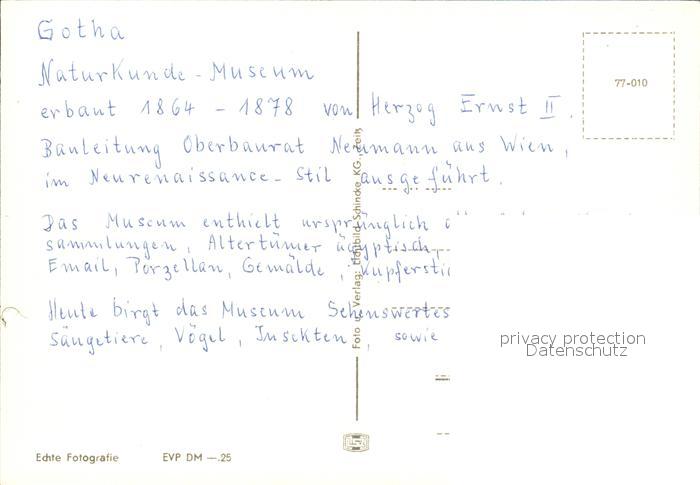 Gotha
77-010
Naturkunde - Museum
erbaut 1864 - 1878 von Herzog Ernst II.
Bauleitung Oberbaurat Neumann aus Wien,
im Neurenaissance - Stil ausgeführt.
Das Museum enthielt ursprünglich
sammlungen, Altertümer ägyptisch,
Email, Porzellan, Gemälde, Kupfersti
Heute birgt das Museum Sehenswertes
Säugetiere, Vögel, Insekten, sowie
privacy protection
Datenschutz
Foto u. Verlag: Schincke KG., Zeitz
Echte Fotografie EVP DM —.25